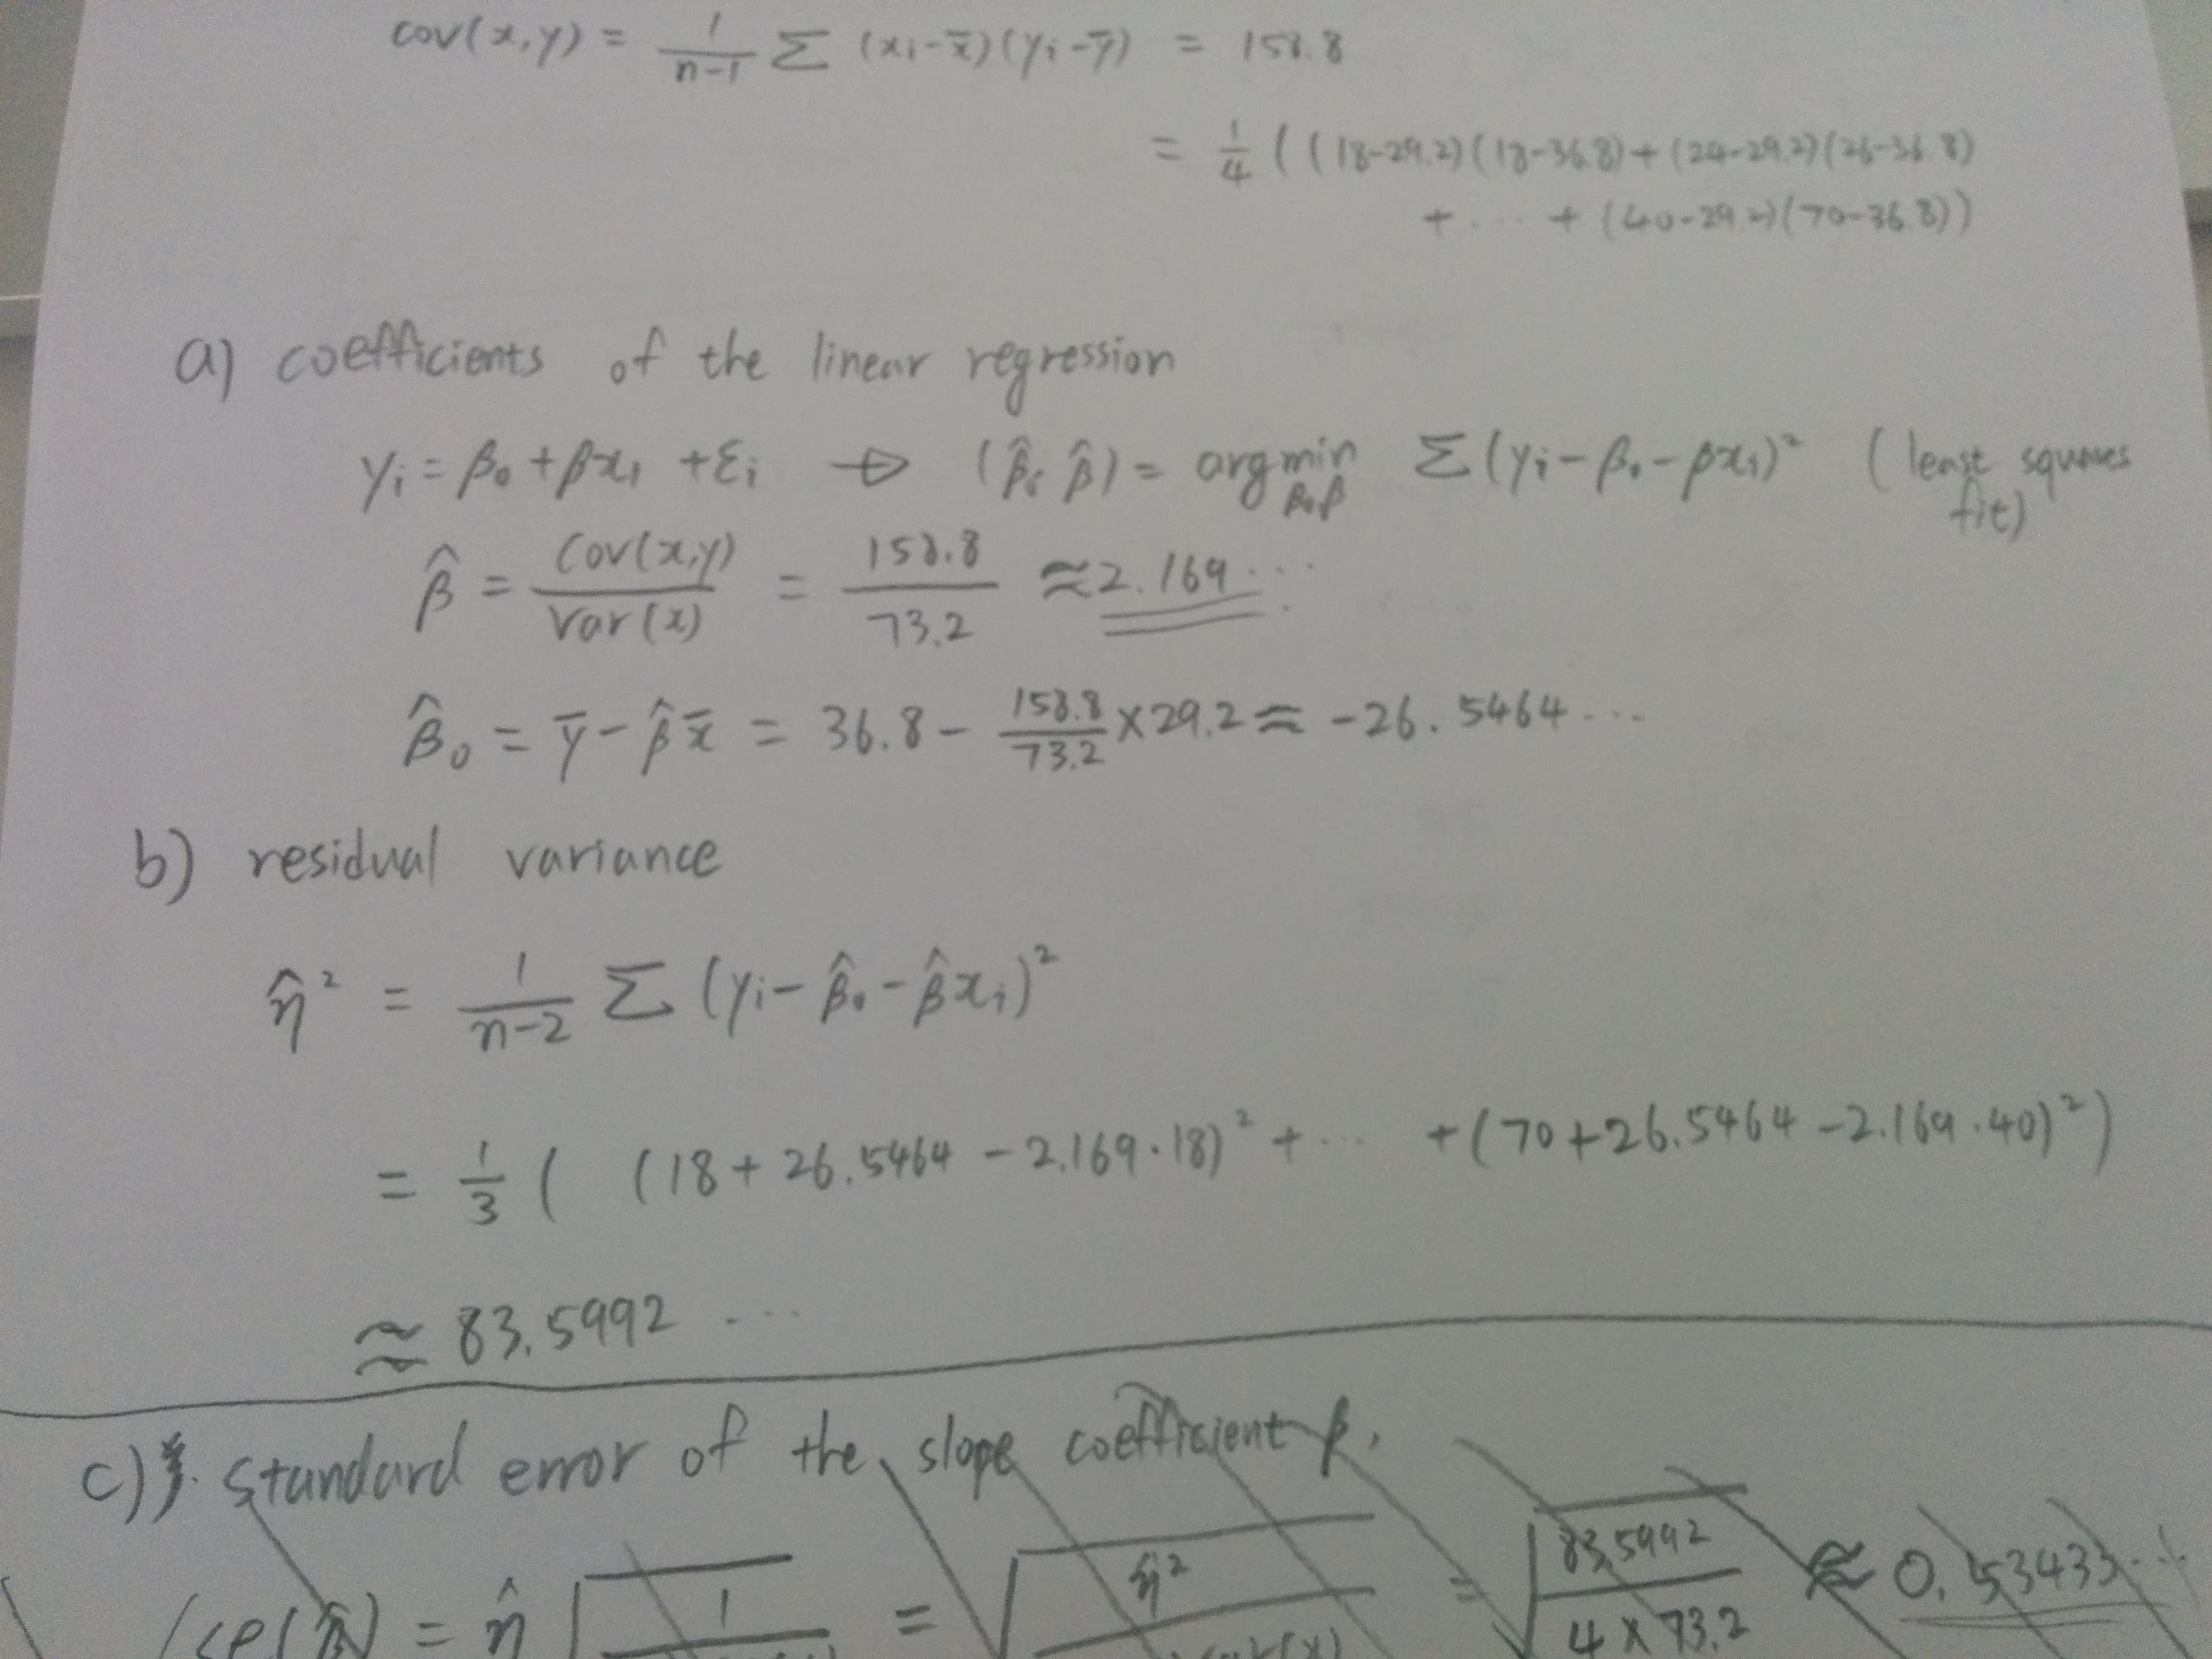 cov(x,y) = 1/(n-1) Σ (xi-x̄)(yi-ȳ) = 158.8
= 1/4 ((18-29.2)(18-36.8)+(24-29.2)(26-36.8)
+ ... + (40-29.2)(70-36.8))
a) coefficients of the linear regression
yi = β₀ + βxi + εi → (β̂₀ β̂) = argmin β₀,β Σ(yi-β₀-βxi)² (least squares fit)
β̂ = Cov(x,y)/Var(x) = 158.8/73.2 ≈ 2.169...
β̂₀ = ȳ - β̂x̄ = 36.8 - 158.8/73.2 × 29.2 ≈ -26.5464...
b) residual variance
η̂² = 1/(n-2) Σ (yi-β̂₀-β̂xi)²
= 1/3 ( (18+26.5464-2.169·18)² + ... + (70+26.5464-2.169·40)²)
≈ 83.5992 ...
c) standard error of the slope coefficient β.
se(β̂) = η̂ √ 1 = √ η̂² var(x) = √ 83.5992/(4×73.2) ≈ 0.53433...